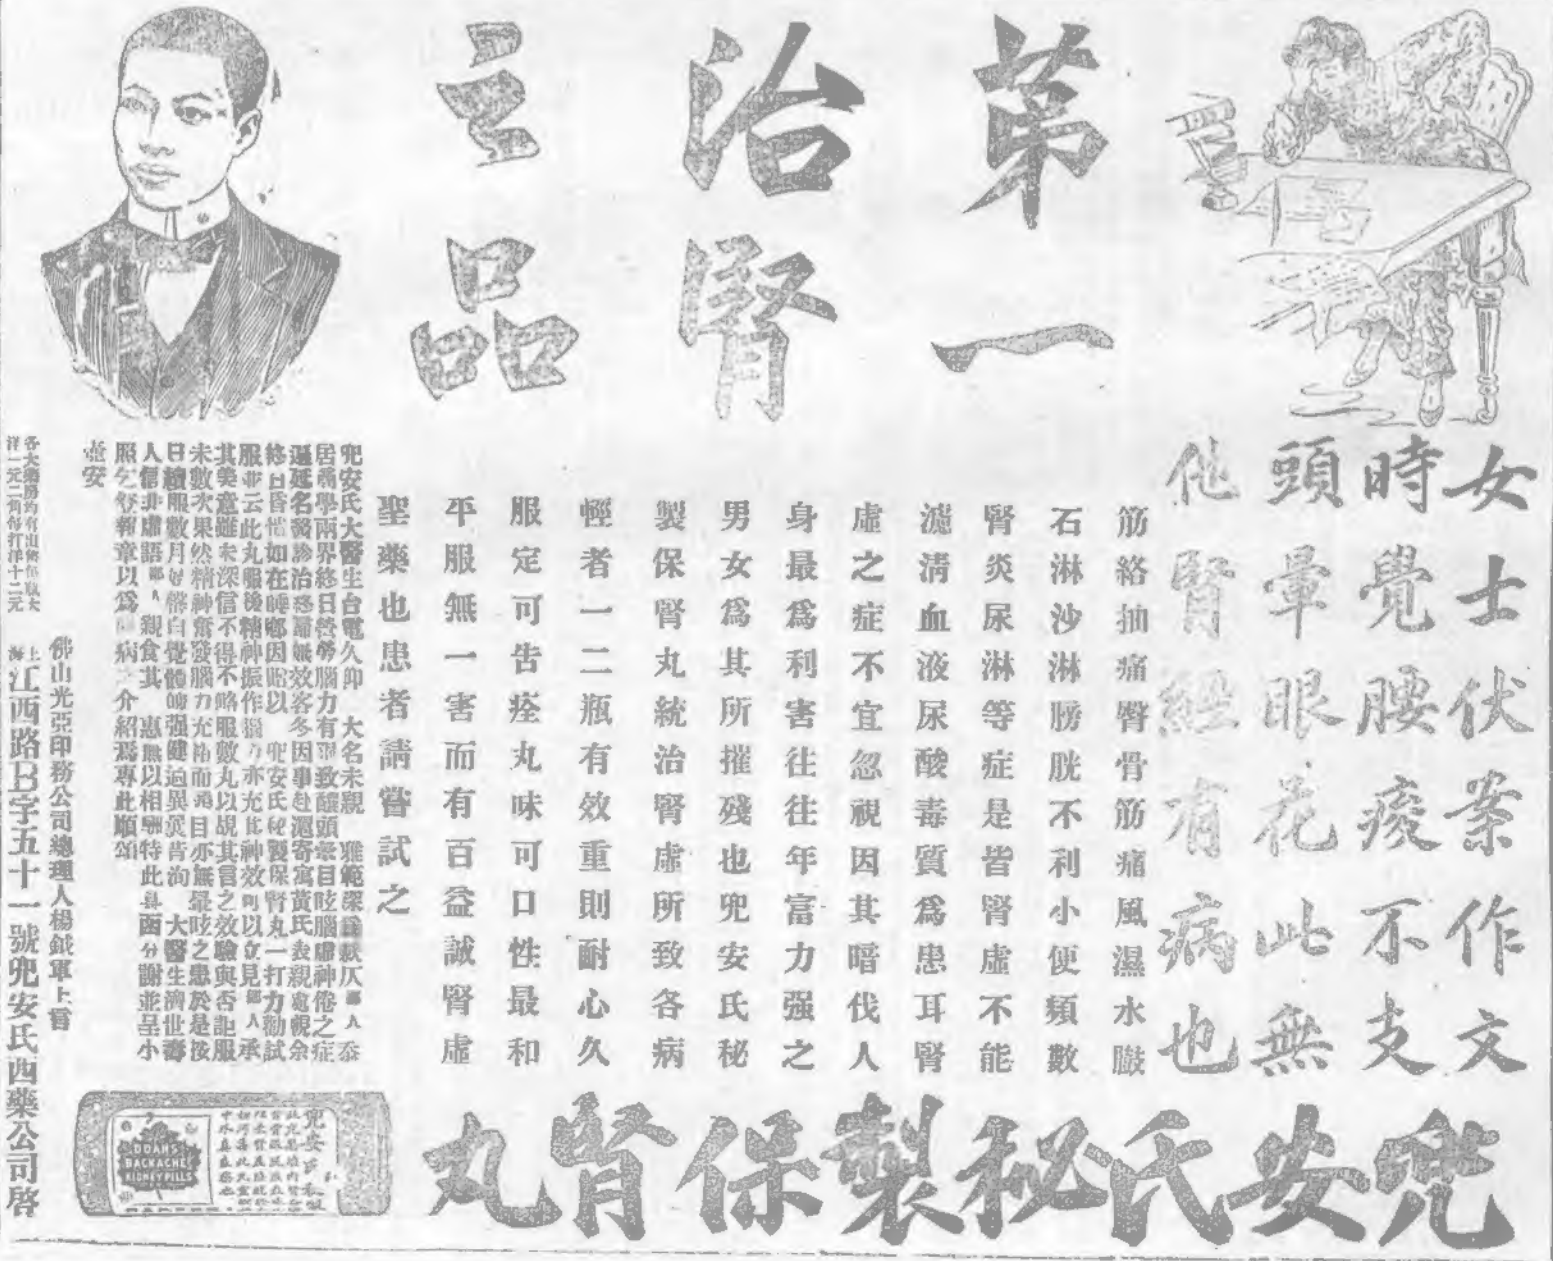 第一
治腎
之品
女士伏案作文
時覺腰痠不支
頭暈眼花此無
他腎經有病也
筋絡抽痛臀骨筋痛風濕水臌
石淋沙淋膀胱不利小便頻數
腎炎尿淋等症是皆腎虛不能
濾清血液尿酸毒質爲患耳腎
虛之症不宜忽視因其暗伐人
身最爲利害往往年富力强之
男女爲其所摧殘也兜安氏秘
製保腎丸統治腎虛所致各病
輕者一二瓶有效重則耐心久
服定可告痊丸味可口性最和
平服無一害而有百益誠腎虛
聖藥也患者請嘗試之
兜安氏秘製保腎丸
兜安氏大醫生台電久仰 大名未親 雅範深爲歉仄鄙人忝
居商學兩界終日營勞腦力有限致釀頭暈目眩腦虛神倦之症
屢延名醫診治恐屬無效客冬因事赴滬寄寓黃氏表親處親余
終日昏惰如在睡鄉因贈以 兜安氏秘製保腎丸一打力勸試
服並云此丸服後精神振作腦力亦充其神效可以立見鄙人承
其美意雖未深信不得不略服數丸以覘其言之效驗與否詎服
未數次果然精神奮發腦力充裕而頭目亦無暈眩之患於是按
日續服數月 自覺體 强健逈異 大醫生濟世壽
人信非虛語鄙人親食其 惠無以相酬特此具函分謝並呈小
照乞登報章以爲 病 介紹焉專此順頌
壺安
佛山光亞印務公司總理人楊鉞軍上言
各大藥房均有出售每瓶大
洋一元二角每打洋十二元
上海江西路B字五十一號兜安氏西藥公司啓
DOAN'S
BACKACHE
KIDNEY PILLS